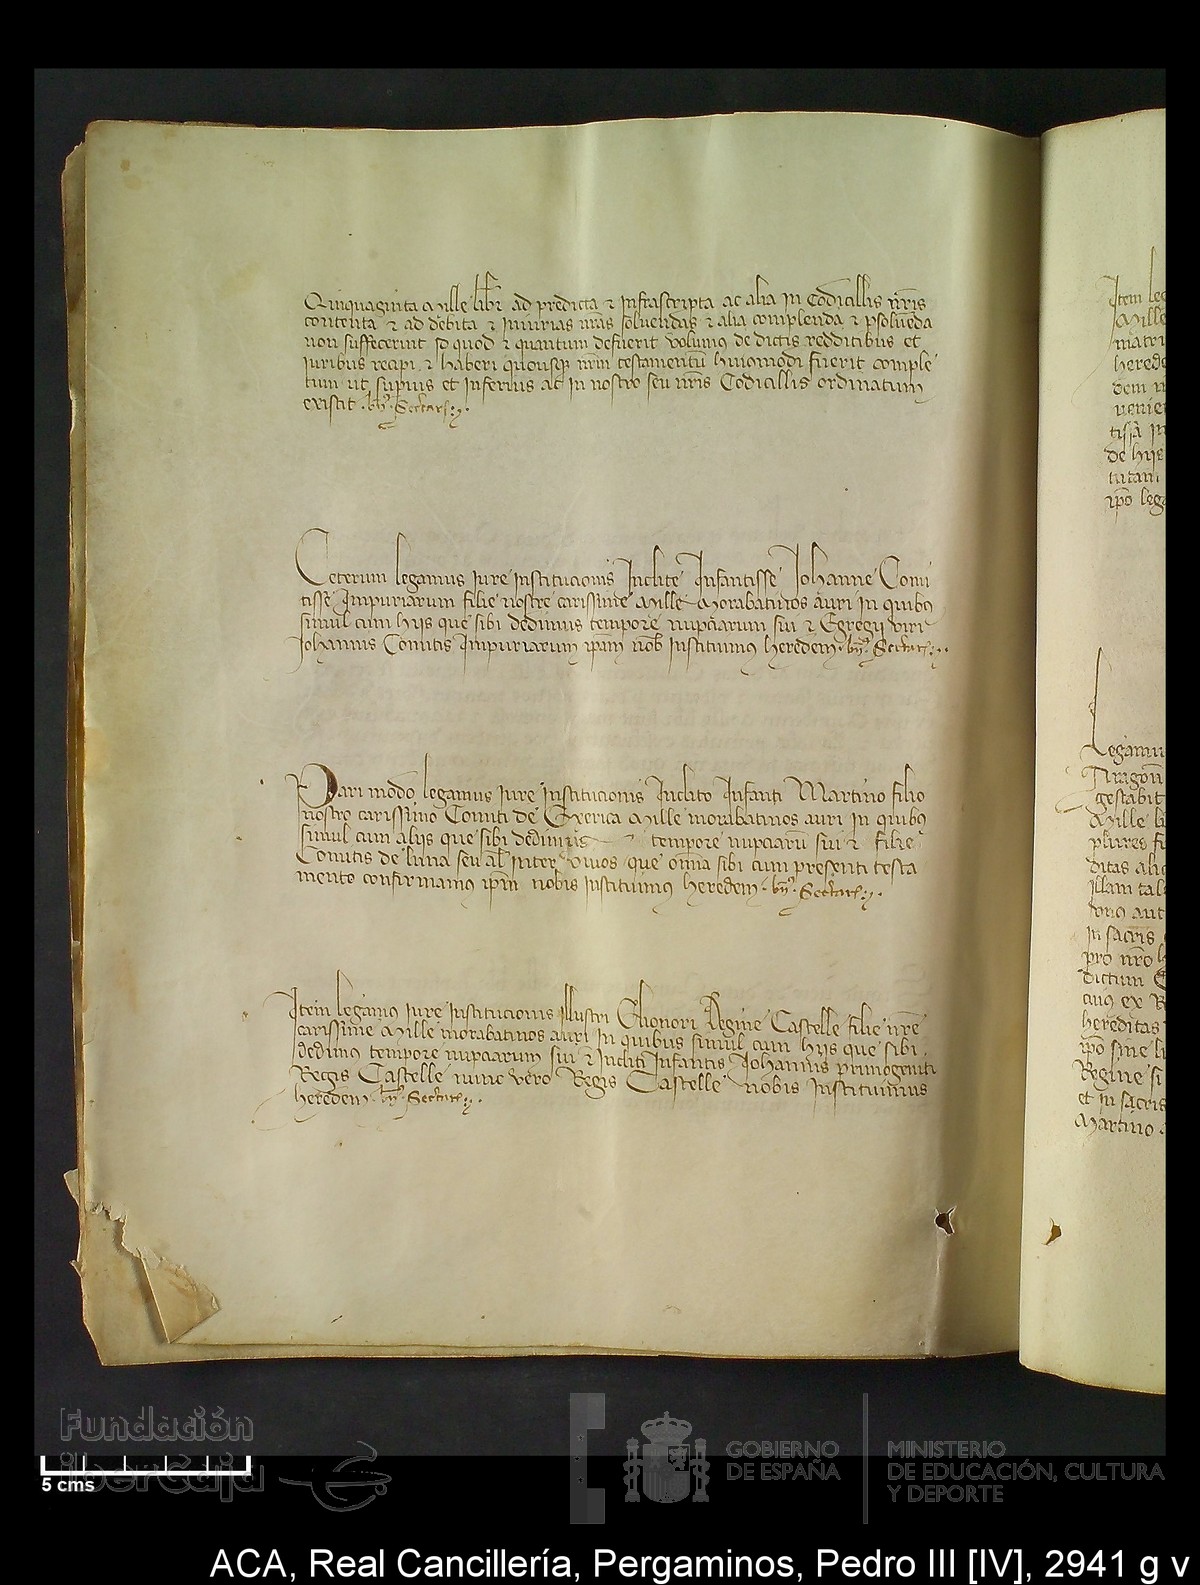 Quinquaginta Mille libr ad predicta & infrascripta ac alia in Codicillis nr̄is
contenta & ad debita & iniurias nr̄as soluendas & alia complenda & psoluēda
non suffecerint id quod & quantum defuerit volumus de dictis redditibus et
iuribus recipi & haberi quousq nr̄m testamentū huiomodi fuerit comple
tum ut supius et inferius ac in nostro seu nr̄is Codicillis ordinatum
existit.
Ceterum legamus iure institucionis Inclite Infantisse Johanne Comi
tisse Impuriarum filie nostre carissime Mille Morabatinos auri in quibus
simul cum hijs que sibi dedimus tempore nupciarum sui & Egregij viri
Johannis Comitis Impuriarum ip̄am nob̄ instituimus heredem.
Pari modo legamus iure institucionis Inclito Infanti Martino filio
nostro carissimo Comiti de Exerica Mille morabatinos auri in quibus
simul cum alijs que sibi dedimus tempore nupciarū sui & filie
Comitis de luna seu al inter viuos que om̄ia sibi cum presenti testa
mento confirmamus ip̄m nobis instituimus heredem.
Item legamus iure institucionis Illustri Elionori Regine Castelle filie nr̄e
carissime Mille morabatinos auri in quibus simul cum hijs que sibi
dedimus tempore nupciarum sui & Incliti Infantis Johannis primogeniti
Regis Castelle nunc vero Regis Castelle nobis instituimus
heredem.
Item leg
Mille
matri
herede
dem
venie
de hijs
ip̄o leg
Legamus
Aragon̄
gestabit
Mille li
plures fi
ditas ali
illam tal
in sacris
pro nr̄o h
dictum
cuius ex
hereditas
ip̄o sine li
Regine si
et in sacris
Martino
Fundación
iberCaja
5 cms
GOBIERNO
DE ESPAÑA
MINISTERIO
DE EDUCACIÓN, CULTURA
Y DEPORTE
ACA, Real Cancillería, Pergaminos, Pedro III [IV], 2941 g v